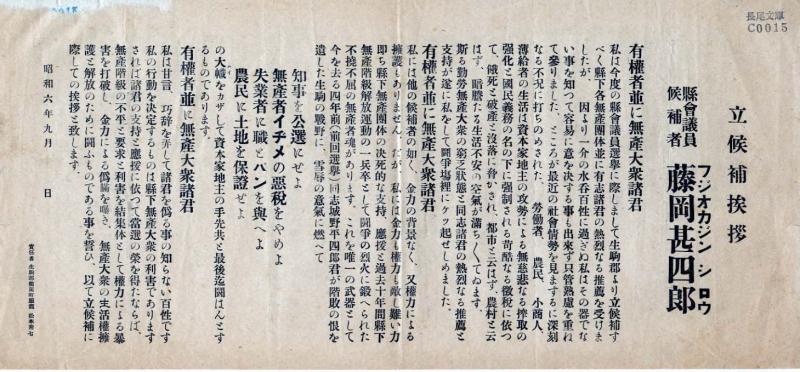 長尾文庫
C0015
立候補挨拶
縣會議員
候補者
藤岡甚四郎
フジオカジンシロウ
有權者並に無產大衆諸君
私は今度の縣會議員選擧に際しまして生駒郡より立候補す
べく縣下各無產團體並に有志諸君の熱烈なる推薦を受けま
したが、因より一介の水呑百姓に過ぎぬ私はその器でな
い事を知つて容易に意を決する事も出來ず只管熟慮を重ね
て參りました、ところが最近の社會情勢を見まするに深刻
なる不況に打ちのめされた、勞働者、農民、小商人、
薄給者の生活は資本家地主の攻勢による無慈悲なる搾取の
强化と國民義務の名の下に强制される苛酷なる徵稅に依つ
て、餓死と破產と沒落に脅かされ、都市と云はず、農村と云
はず、暗膽たる生活不安の空氣が滿ちくてゐます、
斯る勤勞無產大衆の窮乏狀態と同志諸君の熱烈なる推薦と
支持が遂に私をして鬪爭場裡にケツ起せしめました。
有權者並に無產大衆諸君
私には他の候補者の如く、金力の背景なく、又權力による
擁護もありません、だが、私には金力も權力も敵し難い力
即ち縣下無產團體の決死的な支持、應援と過去十年間縣下
無產階級解放運動の一兵卒として鬪爭の烈火に鍛へられた
不撓不屈の無產者魂があります、これを唯一の武器として
今を去る四年前(前回選擧)同志城野平四郎君が階敗の恨を
遺した生駒の戰野に、雪辱の意氣に燃へて
知事を公選にせよ
無產者イヂメの惡稅をやめよ
失業者に職とパンを與へよ
農民に土地を保證せよ
の大幟をカザして資本家地主の手先共と最後迄鬪はんとす
るものであります。
有權者並に無產大衆諸君
私は甘言、巧辭を弄して諸君を僞る事の知らない百姓です
私の行動を決定するものは縣下無產大衆の利害であります
されば諸君の支持と應援に依つて當選の榮を得たならば、
無產階級の不平と要求と利害を結集體として權力による暴
害を打破し、金力による僞瞞を曝き、無產大衆の生活權擁
護と解放のために鬪ふものである事を誓ひ、以て立候補に
際しての挨拶と致します。
昭和六年九月　日